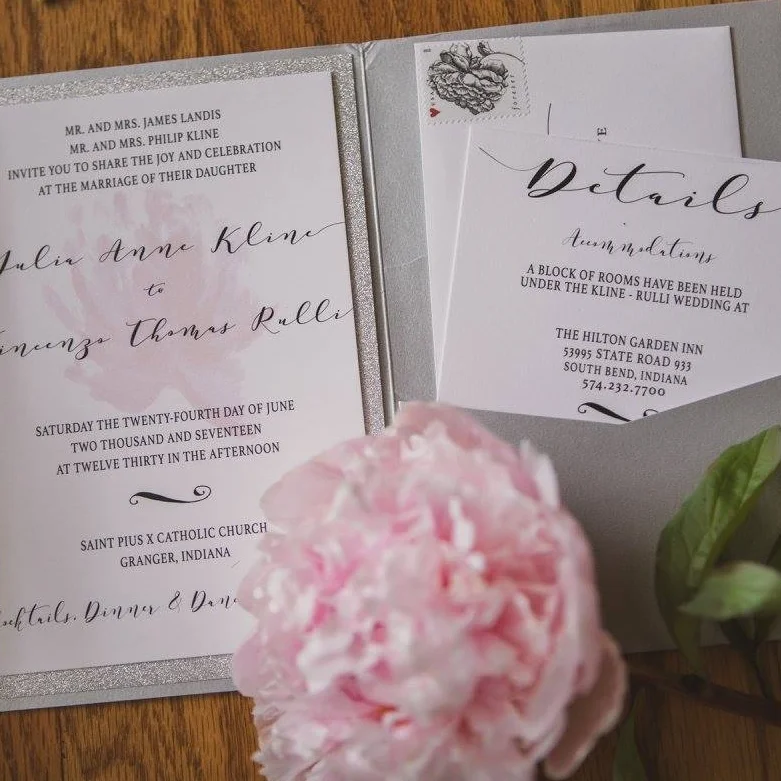 MR. AND MRS. JAMES LANDIS
MR. AND MRS. PHILIP KLINE
INVITE YOU TO SHARE THE JOY AND CELEBRATION
AT THE MARRIAGE OF THEIR DAUGHTER
Julia Anne Kline
to
Vincenzo Thomas Rulli
SATURDAY THE TWENTY-FOURTH DAY OF JUNE
TWO THOUSAND AND SEVENTEEN
AT TWELVE THIRTY IN THE AFTERNOON
SAINT PIUS X CATHOLIC CHURCH
GRANGER, INDIANA
Cocktails, Dinner &
forever
Details
Accommodations
A BLOCK OF ROOMS HAVE BEEN HELD
UNDER THE KLINE - RULLI WEDDING AT
THE HILTON GARDEN INN
53995 STATE ROAD 933
SOUTH BEND, INDIANA
574.232.7700